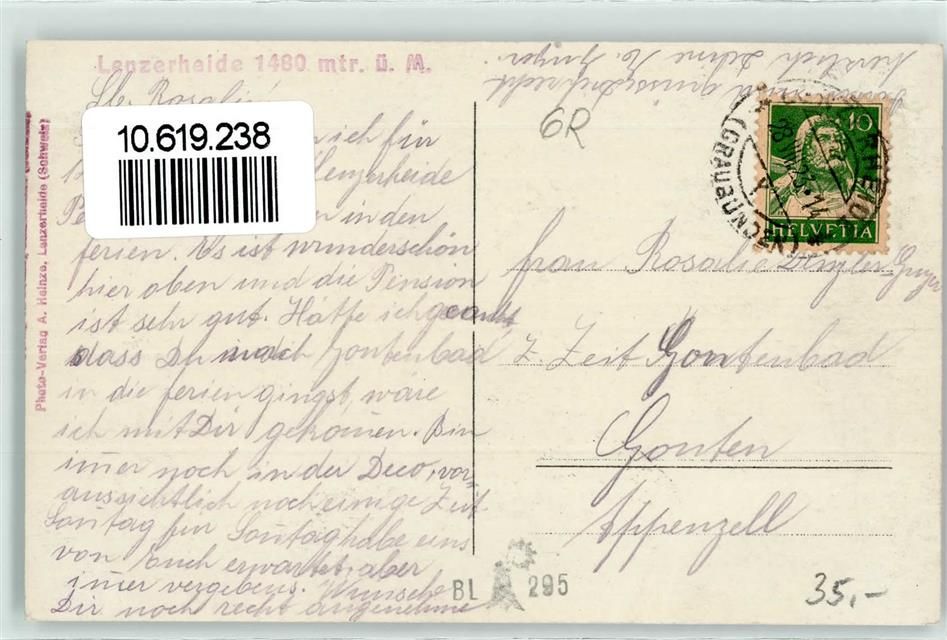 Lenzerheide 1480 mtr. ü. M.
Lb. Rosalie
10.619.238
ich für
Lenzerheide
in den
ferien. Es ist wunderschön
hier oben und die Pension
ist sehr gut. Hätte ich geahnt
dass Du nach Gontenbad
in die ferien gingst, wäre
ich mit Dir gekomen. Bin
imer noch in der Deco, vor-
aussichtlich noch einige Zeit
Sontag für Sontag habe uns
von Euch erwartet, aber
imer vergebens. Wünsche
Dir noch recht angenehme
herzlich
6R
10
HELVETIA
(GRAUBÜNDEN)
frau Rosalie Denzler-
z. Zeit Gontenbad
Gonten
Appenzell
Photo-Verlag A. Heinze, Lenzerheide (Schweiz)
BL 295
35,-